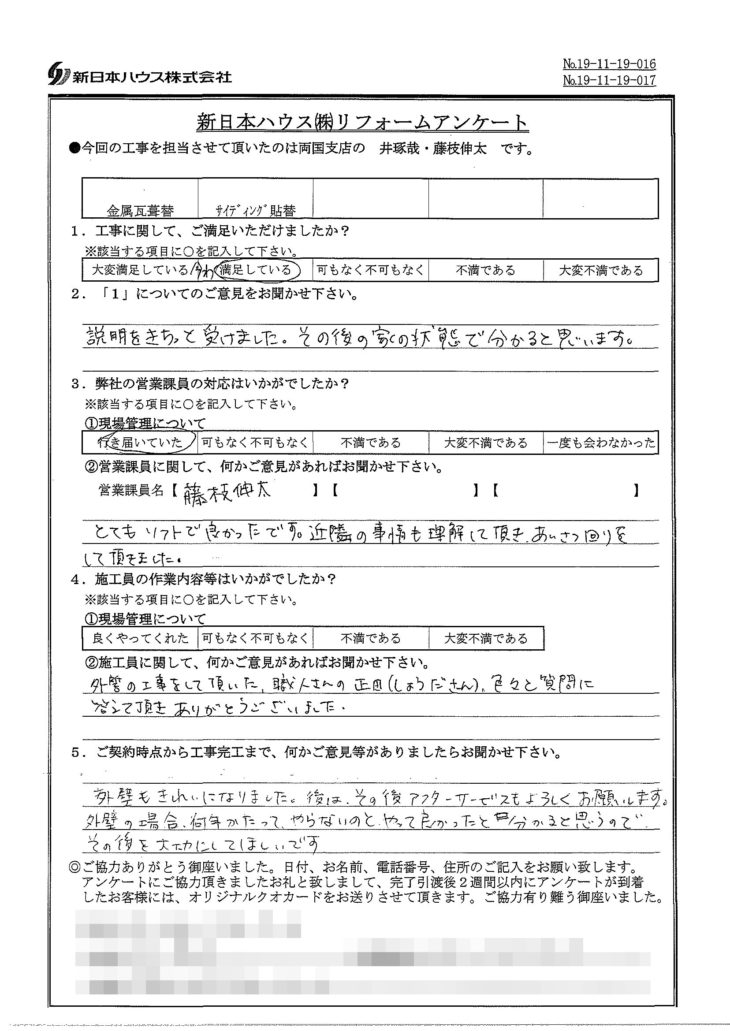 新日本ハウス株式会社
№19-11-19-016
№19-11-19-017
新日本ハウス㈱リフォームアンケート
●今回の工事を担当させて頂いたのは両国支店の 井琢哉・藤枝伸太 です。
金属瓦葺替 ｻｲﾃﾞｨﾝｸﾞ貼替
1．工事に関して、ご満足いただけましたか？
※該当する項目に○を記入して下さい。
大変満足している 満足している 可もなく不可もなく 不満である 大変不満である
2．「1」についてのご意見をお聞かせ下さい。
説明をきちっと受けました。その後の家の状態で分かると思います。
3．弊社の営業課員の対応はいかがでしたか？
※該当する項目に○を記入して下さい。
①現場管理について
行き届いていた 可もなく不可もなく 不満である 大変不満である 一度も会わなかった
②営業課員に関して、何かご意見があればお聞かせ下さい。
営業課員名【 藤枝伸太 】【 】【 】
とてもソフトで良かったです。近隣の事情も理解して頂き、あいさつ回りを
して頂きました。
4．施工員の作業内容等はいかがでしたか？
※該当する項目に○を記入して下さい。
①現場管理について
良くやってくれた 可もなく不可もなく 不満である 大変不満である
②施工員に関して、何かご意見があればお聞かせ下さい。
外管の工事をして頂いた、職人さんの正田(しょうださん)、色々と質問に
答えて頂きありがとうございました。
5．ご契約時点から工事完工まで、何かご意見等がありましたらお聞かせ下さい。
外壁もきれいになりました。後は、その後アフターサービスもよろしくお願いします。
外壁の場合、何年かたって、やらないのと、やって良かったと 分かると思うので、
その後を大切にしてほしいです
◎ご協力ありがとう御座いました。日付、お名前、電話番号、住所のご記入をお願い致します。
アンケートにご協力頂きましたお礼と致しまして、完了引渡後２週間以内にアンケートが到着
したお客様には、オリジナルクオカードをお送りさせて頂きます。ご協力有り難う御座いました。